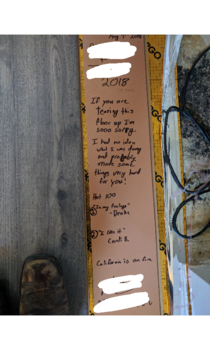 2018
If you are
tearing this
floor up I'm
sooo sorry.
I had no idea
what I was doing
and probably
made some
things very hard
for you!
Hot 100
"In my feelings"
- Drake
"I like it"
Cardi B.
California is on fire